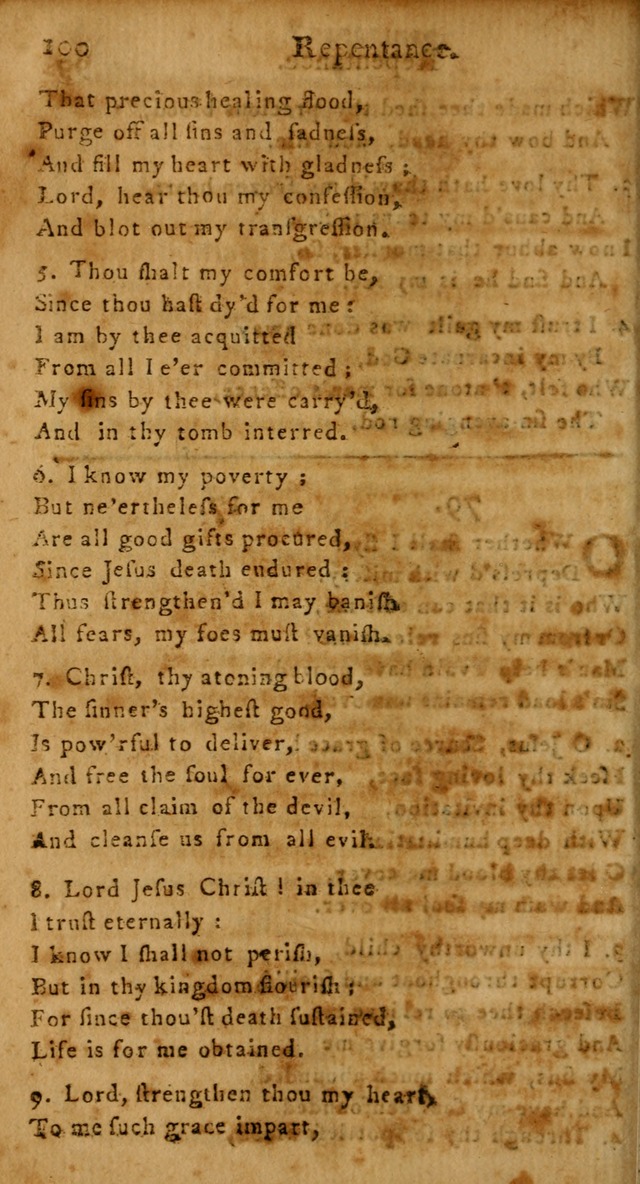 100 Repentance.
That precious healing flood,
Purge off all ſins and ſadneſs,
And fill my heart with gladneſs ;
Lord, hear thou my confeſſion,
And blot out my tranſgreſſion.
5. Thou ſhalt my comfort be,
Since thou haſt dy'd for me :
I am by thee acquitted
From all I e'er committed ;
My ſins by thee were carry'd,
And in thy tomb interred.
6. I know my poverty ;
But ne'ertheleſs for me
Are all good gifts procured,
Since Jeſus death endured :
Thus ſtrengthen'd I may baniſh
All fears, my foes muſt vaniſh.
7. Chriſt, thy atoning blood,
The ſinner's higheſt good,
Is pow'rful to deliver,
And free the ſoul for ever,
From all claim of the devil,
And cleanſe us from all evil.
8. Lord Jeſus Chriſt ! in thee
I truſt eternally :
I know I ſhall not periſh,
But in thy kingdom flouriſh ;
For ſince thou'ſt death ſuſtained,
Life is for me obtained.
9. Lord, ſtrengthen thou my heart,
To me ſuch grace impart,